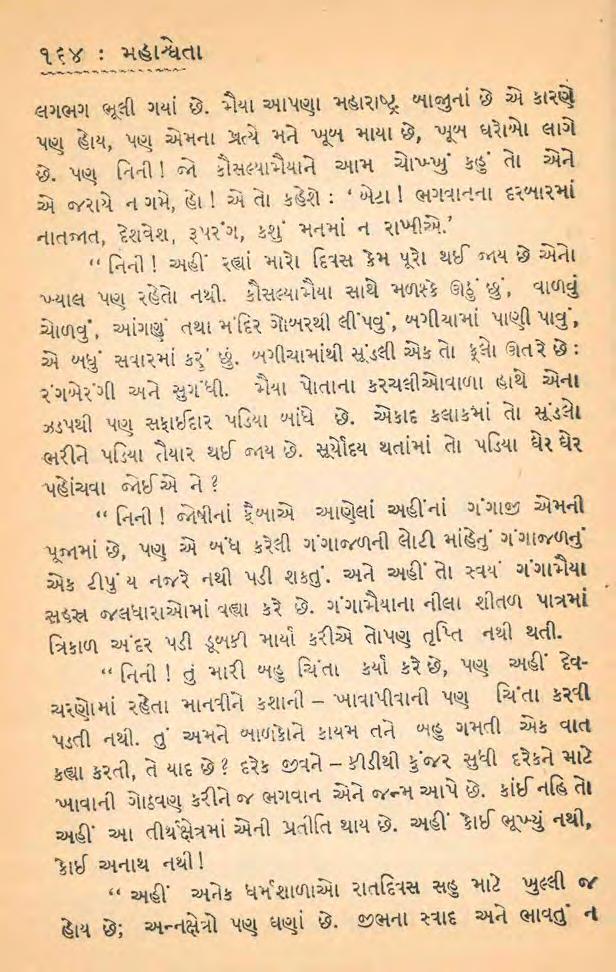 ૧૬૪ : મહાશ્વેતા
લગભગ ભૂલી ગયાં છે. મૈયા આપણા મહારાષ્ટ્ર બાજુનાં છે એ કારણે
પણ હોય, પણ એમના પ્રત્યે મને ખૂબ માયા છે, ખૂબ ધરોબો લાગે
છે. પણ નિની ! જો કૌસલ્યામૈયાને આમ ચોખ્ખું કહું તો એને
એ જરાયે ન ગમે, હો ! એ તો કહેશે : ‘ બેટા ! ભગવાનના દરબારમાં
નાતજાત, દેશવેશ, રૂપરંગ, કશું મનમાં ન રાખીએ.’
“ નિની ! અહીં રહ્યાં મારો દિવસ કેમ પૂરો થઈ જાય છે એનો
ખ્યાલ પણ રહેતો નથી. કૌસલ્યામૈયા સાથે મળસ્કે ઊઠું છું, વાળવું
ચોળવું, આંગણું તથા મંદિર ગોબરથી લીંપવું, બગીચામાં પાણી પાવું,
એ બધું સવારમાં કરું છું. બગીચામાંથી સૂંડલી એક તો ફૂલો ઊતરે છે :
રંગબેરંગી અને સુગંધી. મૈયા પોતાના કરચલીઓવાળા હાથે એના
ઝડપથી પણ સફાઈદાર પડિયા બાંધે છે. એકાદ કલાકમાં તો સૂંડલો
ભરીને પડિયા તૈયાર થઈ જાય છે. સૂર્યોદય થતાંમાં તો પડિયા ઘેર ઘેર
પહોંચવા જોઈએ ને ?
“ નિની ! જોષીનાં ફૈબાએ આણેલાં અહીંનાં ગંગાજી એમની
પૂજામાં છે, પણ એ બંધ કરેલી ગંગાજળની લોટી માંહેનું ગંગાજળનું
એક ટીપું ય નજરે નથી પડી શકતું. અને અહીં તો સ્વયં ગંગામૈયા
સહસ્ર જલધારાઓમાં વહ્યા કરે છે. ગંગામૈયાના નીલા શીતળ પાત્રમાં
ત્રિકાળ અંદર પડી ડૂબકી માર્યા કરીએ તોપણ તૃપ્તિ નથી થતી.
“ નિની ! તું મારી બહુ ચિંતા કર્યા કરે છે, પણ અહીં દેવ-
ચરણોમાં રહેતા માનવીને કશાની – ખાવાપીવાની પણ ચિંતા કરવી
પડતી નથી. તું અમને બાળકોને કાયમ તને બહુ ગમતી એક વાત
કહ્યા કરતી, તે યાદ છે ? દરેક જીવને – કીડીથી કુંજર સુધી દરેકને માટે
ખાવાની ગોઠવણ કરીને જ ભગવાન એને જન્મ આપે છે. કાંઈ નહિ તો
અહીં આ તીર્થક્ષેત્રમાં એની પ્રતીતિ થાય છે. અહીં કોઈ ભૂખ્યું નથી,
કોઈ અનાથ નથી !
“ અહીં અનેક ધર્મશાળાઓ રાતદિવસ સહુ માટે ખુલ્લી જ
હોય છે; અન્નક્ષેત્રો પણ ઘણાં છે. જીભના સ્વાદ અને ભાવતું ન